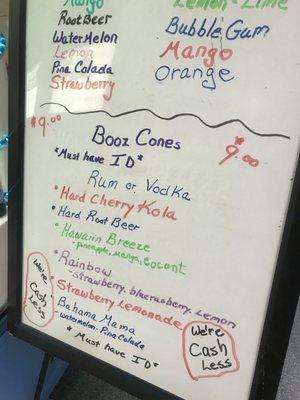 Mango
Root Beer
Watermelon
Lemon
Pina Colada
Strawberry
Lemon-Lime
Bubble Gum
Mango
Orange
$9.00
Booz Cones
*Must have ID*
9.00
Rum or Vodka
*Hard Cherry Kola
*Hard Root Beer
*Hawaiin Breeze
-pineapple, mango, cocont
*Rainbow
-strawberry, blueraspberry, Lemon
*Strawberry Lemonade
*Bahama Mama
-watermelon, Pina Colada
*Must have ID*
We're
Cash
Less
We're
Cash
Less